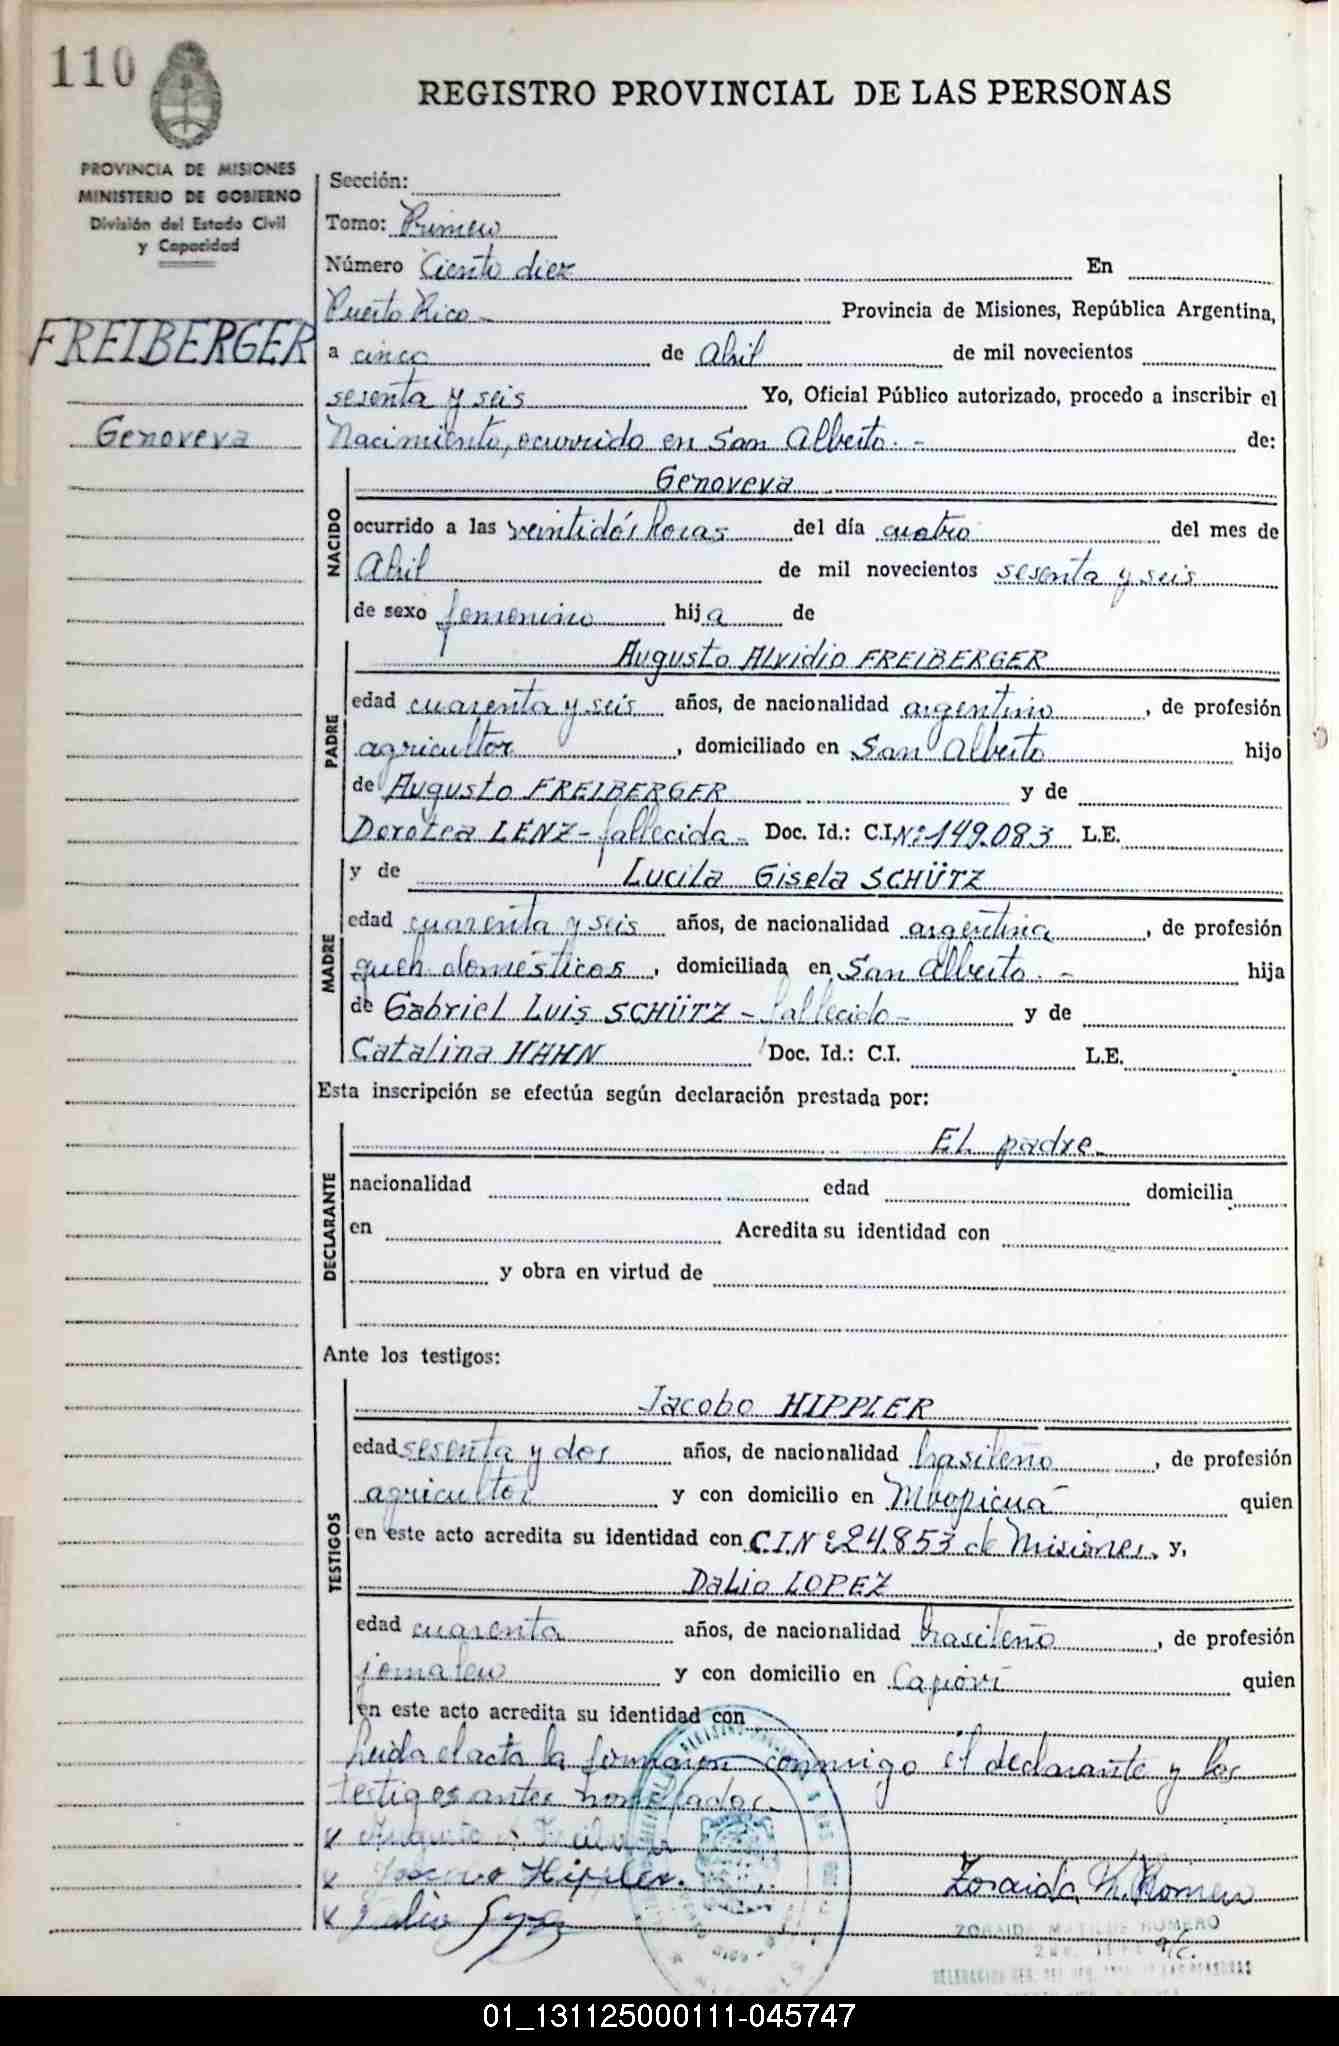 110
REGISTRO PROVINCIAL DE LAS PERSONAS
PROVINCIA DE MISIONES
MINISTERIO DE GOBIERNO
División del Estado Civil
y Capacidad
FREIBERGER
Genoveva
Sección:
Tomo: Primero
Número Ciento diez En
Puerto Rico - Provincia de Misiones, República Argentina,
a cinco de Abril de mil novecientos
sesenta y seis Yo, Oficial Público autorizado, procedo a inscribir el
Nacimiento, ocurrido en San Alberto. - de:
NACIDO
Genoveva
ocurrido a las veintidós horas del día cuatro del mes de
Abril de mil novecientos sesenta y seis
de sexo femenino hija de
PADRE
Augusto Alvidio FREIBERGER
edad cuarenta y seis años, de nacionalidad argentino, de profesión
agricultor, domiciliado en San Alberto hijo
de Augusto FREIBERGER y de
Dorotea LENZ - fallecida - Doc. Id.: C.I. Nº 149.083 L.E.
MADRE
y de Lucila Gisela SCHÜTZ
edad cuarenta y seis años, de nacionalidad argentina, de profesión
queh. domésticos, domiciliada en San Alberto. - hija
de Gabriel Luis SCHÜTZ - fallecido - y de
Catalina HAHN Doc. Id.: C.I. L.E.
Esta inscripción se efectúa según declaración prestada por:
DECLARANTE
El padre.
nacionalidad edad domicilia
en Acredita su identidad con
y obra en virtud de
Ante los testigos:
TESTIGOS
Jacobo HIPPLER
edad sesenta y dos años, de nacionalidad brasileño, de profesión
agricultor y con domicilio en Mbopicuá quien
en este acto acredita su identidad con C.I.Nº 24.853 de Misiones. y,
Dalio LOPEZ
edad cuarenta años, de nacionalidad brasileño, de profesión
jornalero y con domicilio en Capioví quien
en este acto acredita su identidad con
Leida el acta la firmaron conmigo el declarante y los
testigos antes nombrados.
x Augusto A.
x Hippler.
x
Zoraida M. Romero
ZORAIDA MATILDE ROMERO
a/c.
01_131125000111-045747